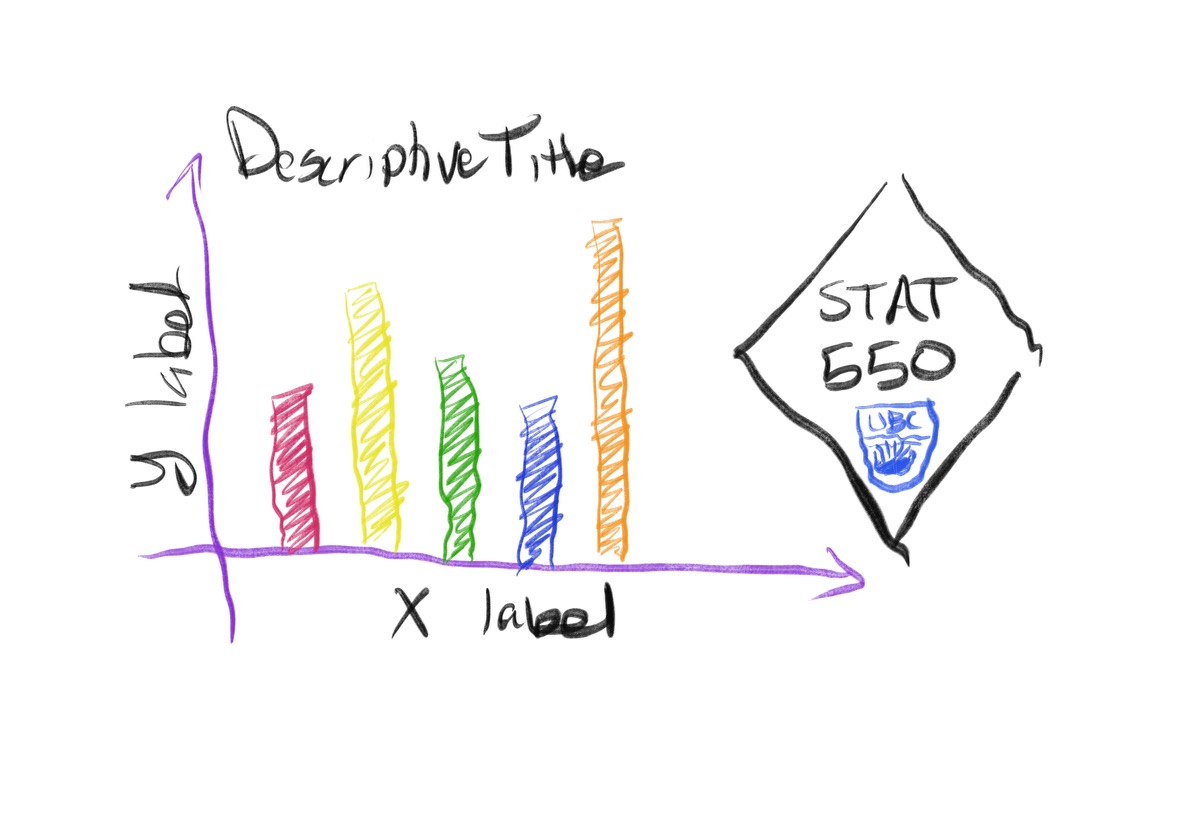 Descriptive Title
y label
X label
STAT
550
UBC